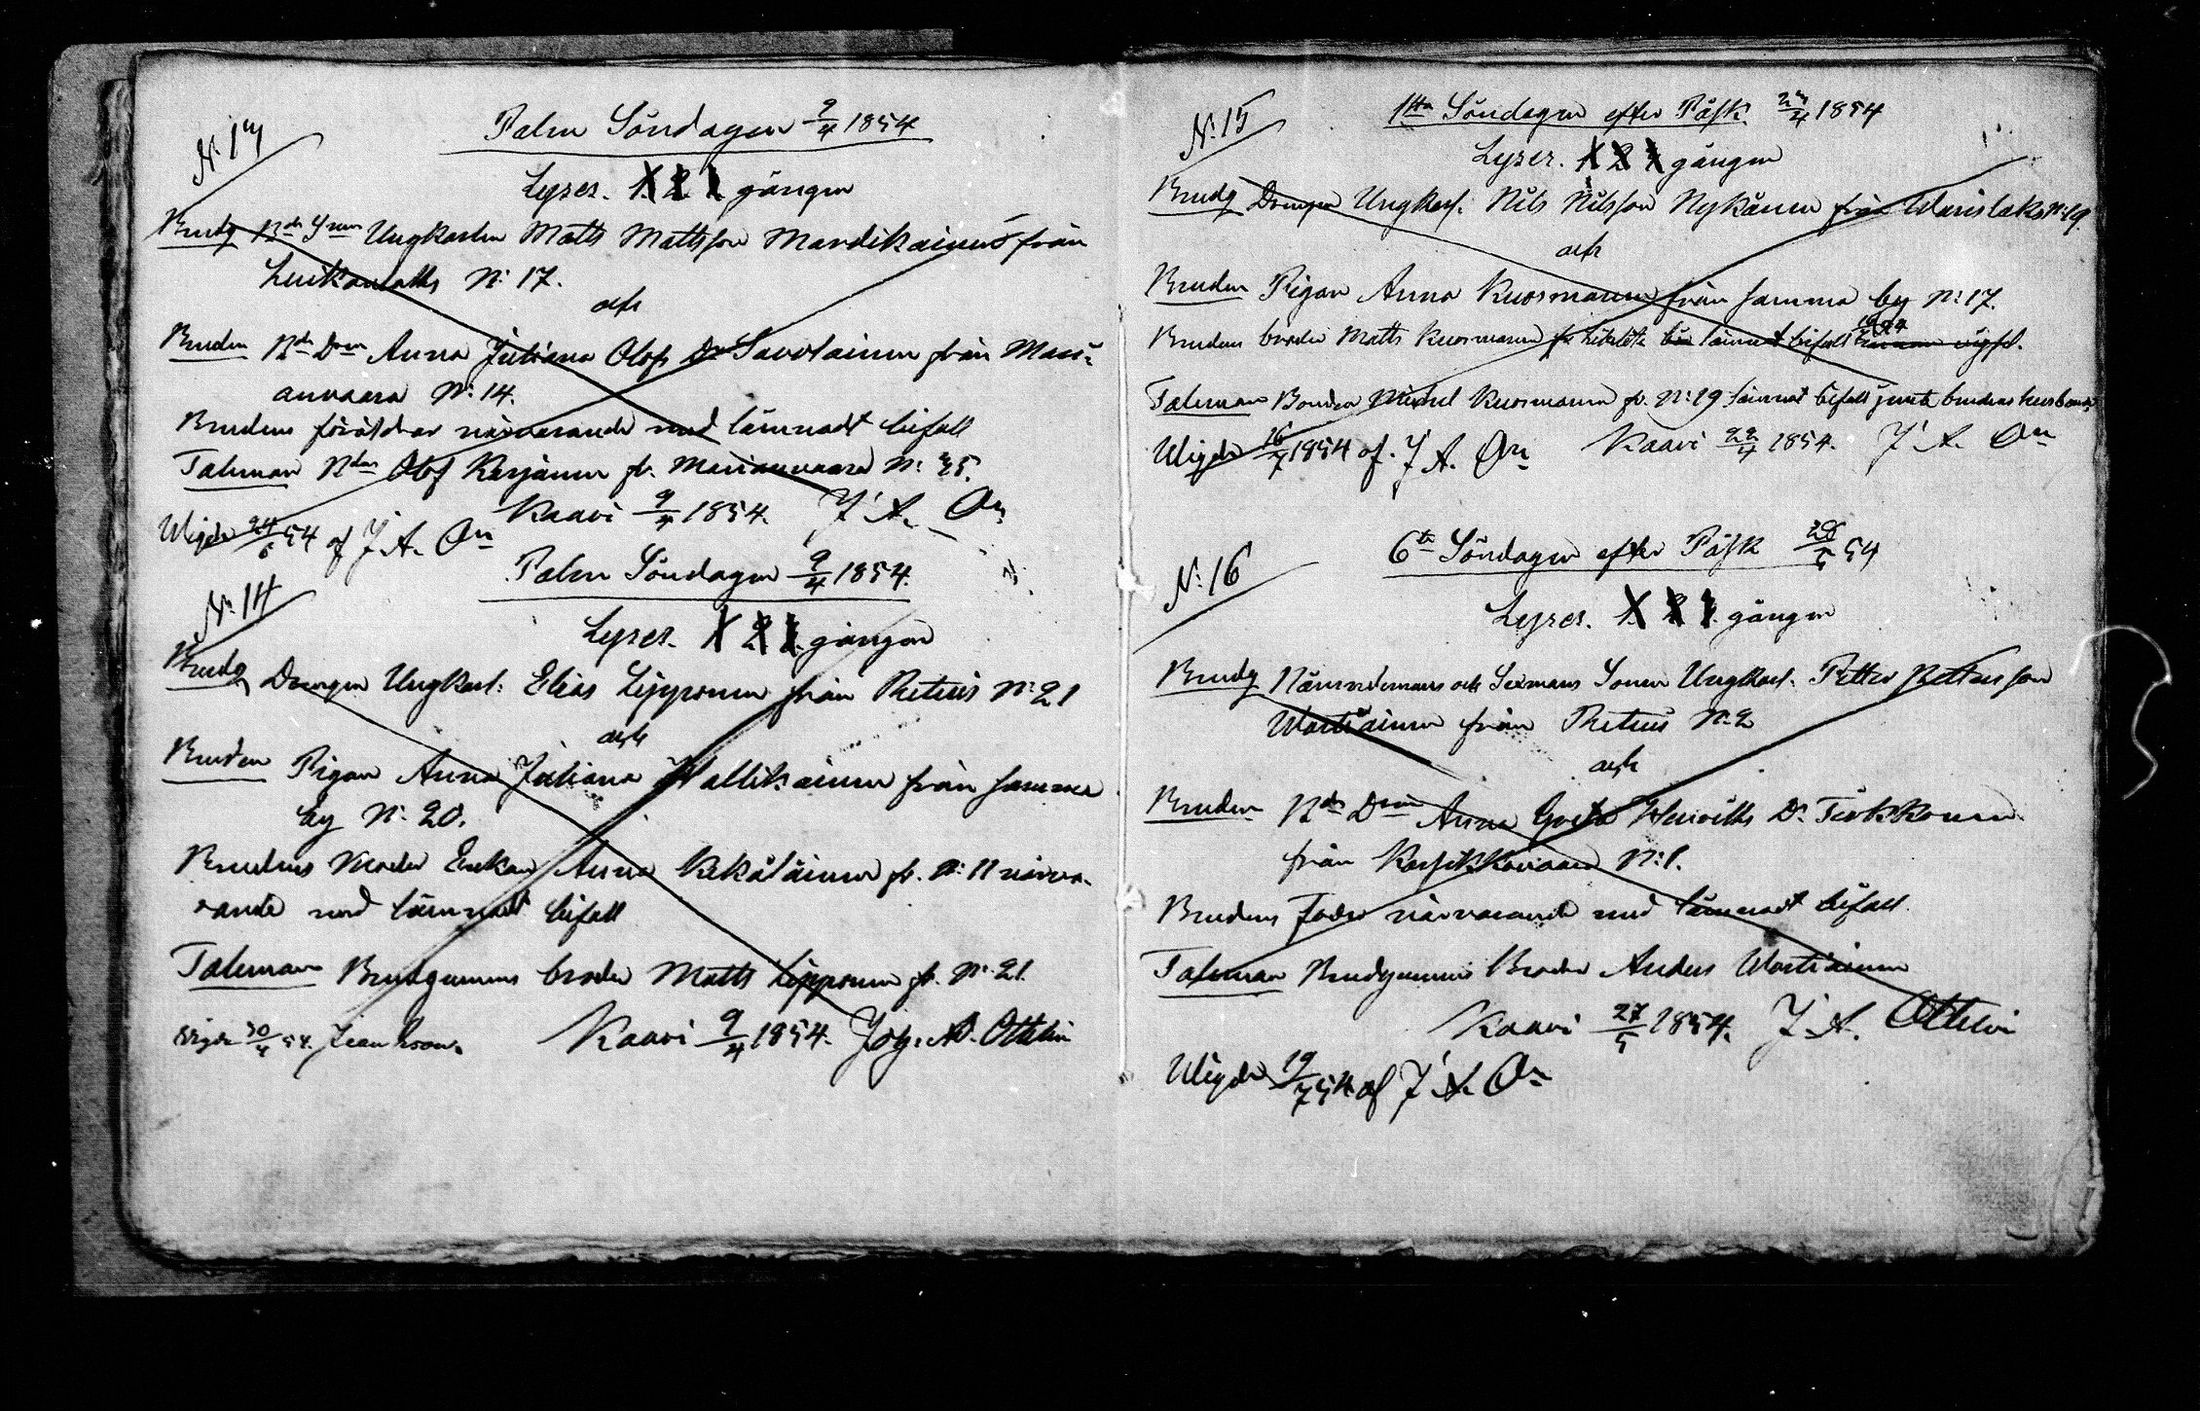 N: 13
Palm Söndagen 9/4 1854
Lyses. 1. 2. 3. gången
Brudg Bde Sven Ungkarlen Matts Mattsson Mardikainen från
Luikonlaks N: 17.
och
Bruden Bde Dren Anna Juliana Olofs Dr Savolainen från Mari-
anvaara N: 14.
Brudens föräldrar närvarande med lämnadt bifall
Taleman Bden Olof Karjanen fr. Marianvaara N:
Kaavi 9/4 1854. J. A. On
Wigde 24/6 54 af J. A. On
N: 14
Palm Söndagen 9/4 1854.
Lyses. 1 2 3. gången
Brudg Drengen Ungkarl: Elias Lipponen från Retuis N: 21
och
Bruden Pigan Anna Juliana Hallikainen från samma
by N: 20.
Brudens Moder Enkan Anna Kekäläinen fr. N: 11 närva-
rande med lämnadt bifall
Taleman Brudgummens broder Matts Lipponen fr. N: 21.
Kaavi 9/4 1854. Joh. Ad. Ottelin
Wigde 30/4 54.
N: 15
1sta Söndagen efter Påsk. 23/4 1854
Lyses. 1 2 3 gången
Brudg Drengen Ungkarl. Nils Nilsson Nykänen från Warislaks N: 19.
och
Bruden Pigan Anna Kuosmanen från samma by N: 17.
Brudens broder Matts Kuosmanen lämnat bifall
Taleman Bonden Michel Kuosmanen fr. N: 19 lämnat bifall jemte brudens husbonde
Wigde 16/7 1854 af. J. A. On Kaavi 22/4 1854. J. A. On
N: 16
6te Söndagen efter Påsk 28/5 54
Lyses. 1. 2 3. gången
Brudg Nämndemans och Sexmans Sonen Ungkarl. Petter Pettersson
Wartiainen från Retuis N: 2
och
Bruden Bde Dren Anna Greta Henriks Dr Tirkkonen
från Kosikkovaara N: 1.
Brudens Fader närvarande med lämnadt bifall.
Taleman Brudgummens Broder Anders Wartiainen
Kaavi 27/5 1854. J. A. Ottelin
Wigde 19/7 54 af J. A. On